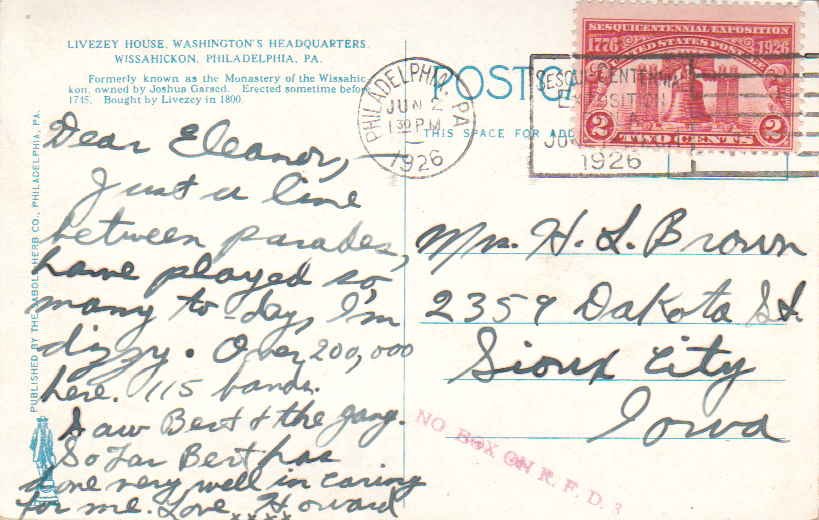 LIVEZEY HOUSE, WASHINGTON'S HEADQUARTERS.
WISSAHICKON, PHILADELPHIA, PA.
Formerly known as the Monastery of the Wissahic-
kon, owned by Joshua Garsed. Erected sometime before
1745. Bought by Livezey in 1800.
PUBLISHED BY THE HERB CO., PHILADELPHIA, PA.
POSTCA
THIS SPACE FOR ADD
PHILADELPHIA, PA.
JUN 2
1 30 PM
1926
SESQUI CENTENNIAL
EXPOSITION
1926
SESQUICENTENNIAL EXPOSITION
1776 1926
UNITED STATES POSTAGE
2 TWO CENTS 2
Dear Eleanor,
Just a line
between parades,
have played so
many to-day, I'm
dizzy. Over 200,000
here. 115 bands.
Saw Bert & the gang.
So far Bert has
done very well in caring
for me. Love Howard
xxxx
Mrs. H. L. Brown
2359 Dakota St.
Sioux City
Iowa
NO BOX ON R. F. D. 3